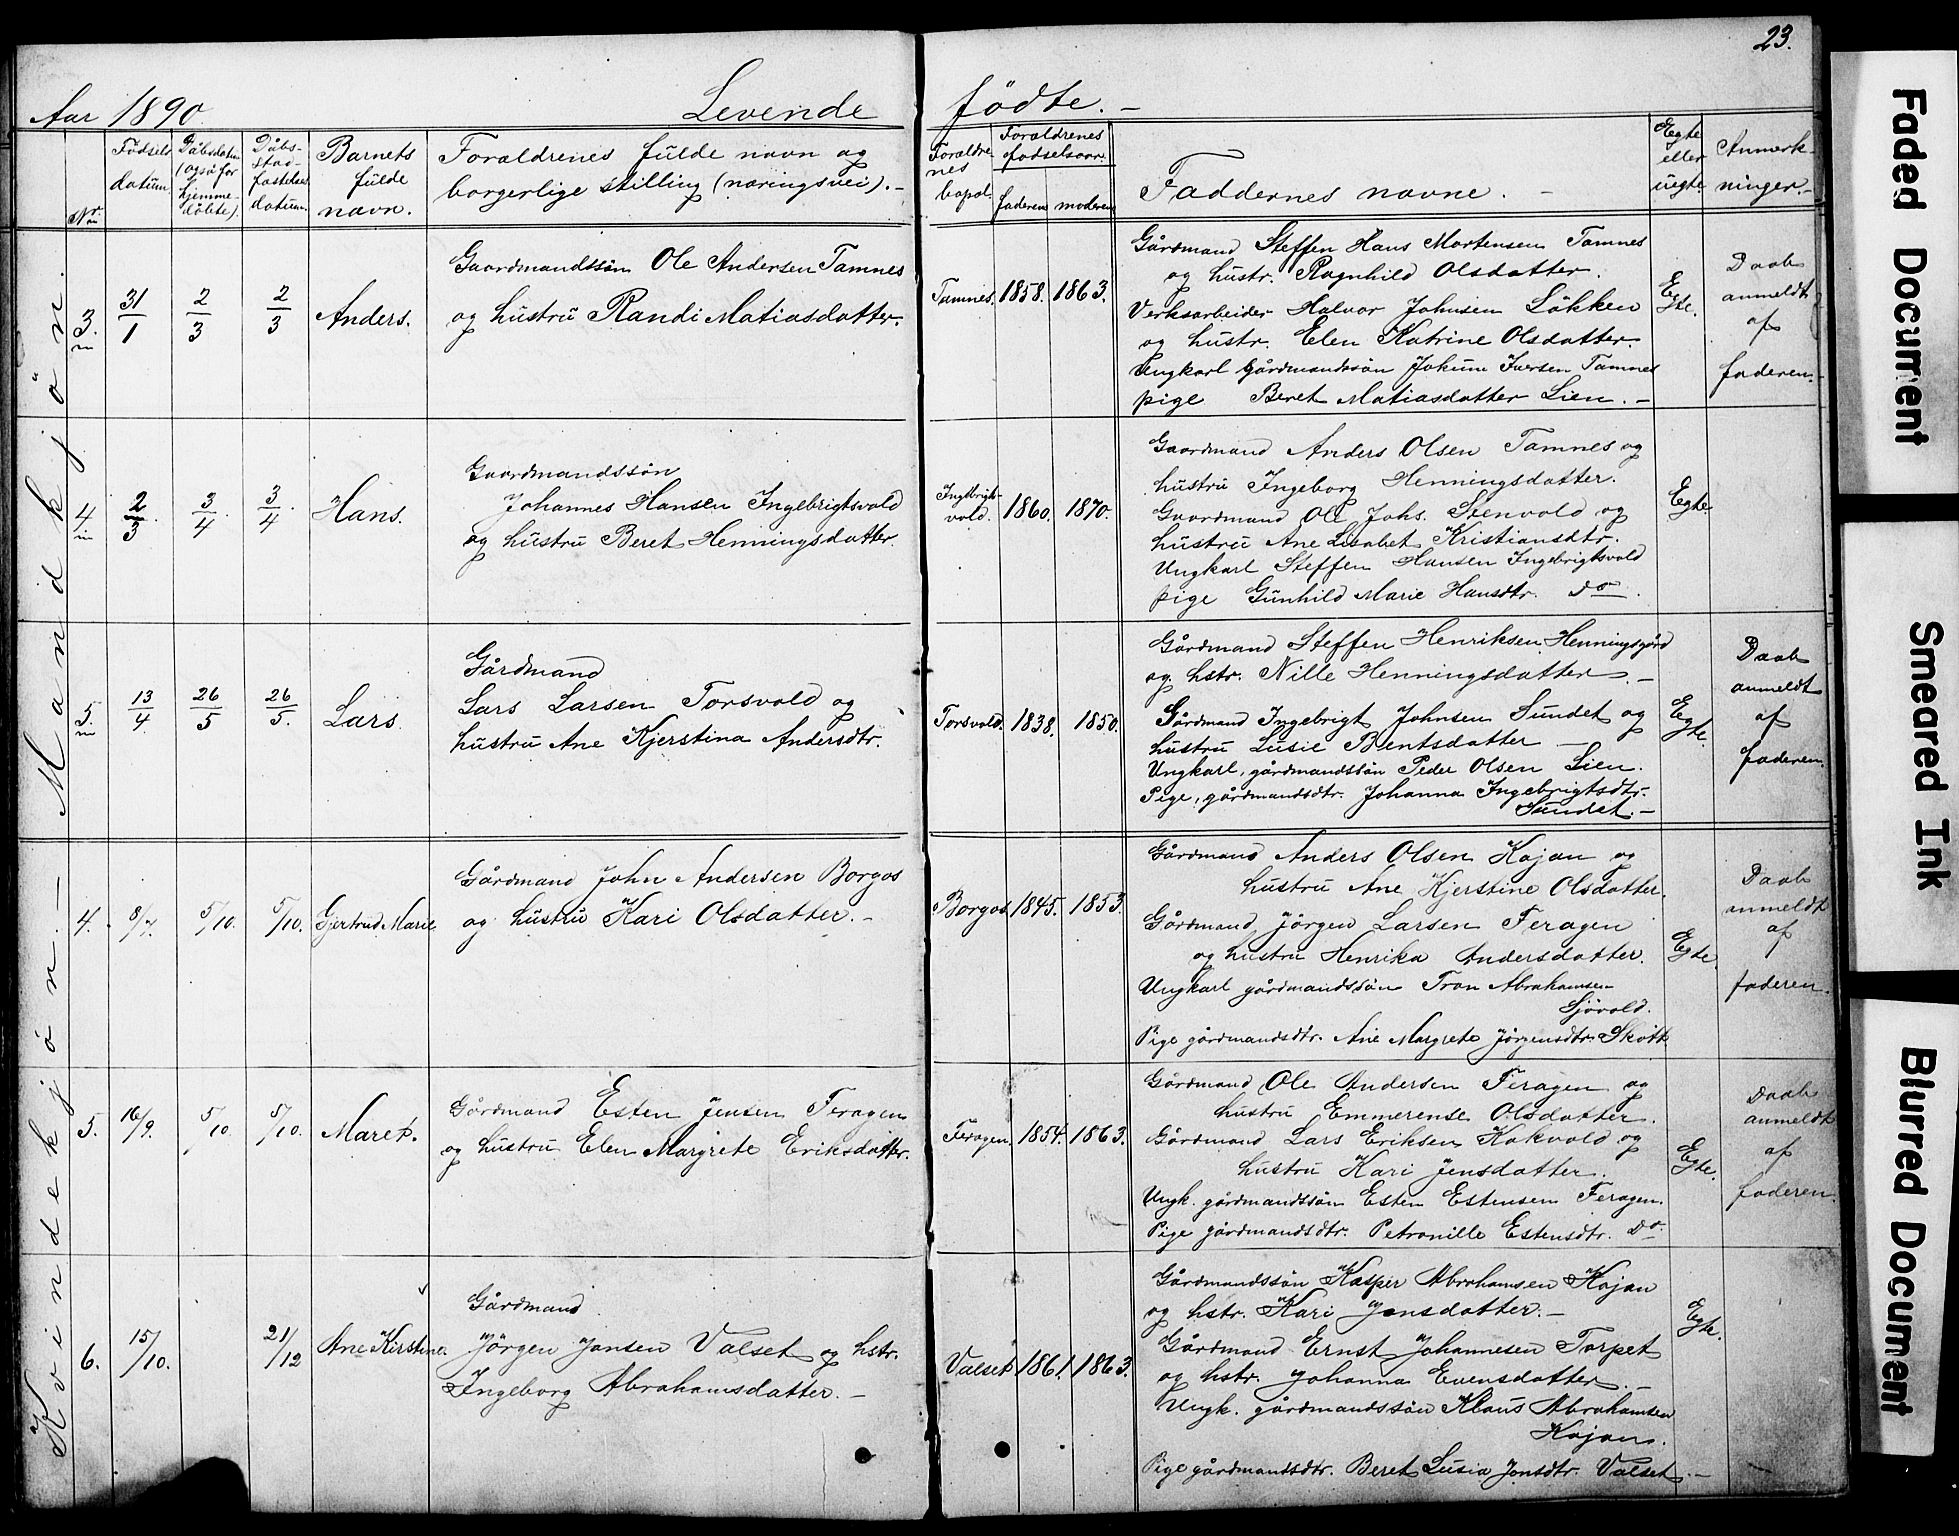 23.
Aar 1890. Levende fødte. -
Mandkjön.
Kvindekjön. -
No
Fødsels datum.
Dåbsdatum (også for hjemme- døbte).
Dåbs- stad- fæstelses datum.
Barnets fulde navn.
Forældrenes fulde navn og borgerlige stilling (næringsvei). -
Forældre- nes bopæl.
Forældrenes fødselsaar.
faderens
moderens
Faddernes navne. -
Ægte eller uægte
Anmærk- ninger. -
3.
31/1
2/3
2/3
Anders.
Gaardmandssøn Ole Andersen Tamnes
og hustru Randi Matiasdatter.
Tamnes.
1858.
1863.
Gårdmand Steffen Hans Mortensen Tamnes
og hustr. Ragnhild Olsdatter.
Verksarbeider Halvor Johnsen Løkken
og hustr. Elen Katrine Olsdatter.
Ungkarl gårdmandssøn Jokum Iversen Tamnes
pige Beret Matiasdatter Lien. -
Ægte.
Daab
anmeldt
af
faderen. -
4.
2/3.
3/4.
3/4.
Hans.
Gaardmandssøn
Johannes Hansen Ingebrigtsvold
og hustru Beret Henningsdatter.
Ingebrigts-
vold.
1860.
1870.
Gaardmand Anders Olsen Tamnes og
hustru Ingeborg Henningsdatter.
Gaardmand Ole Johs. Stenvold og
hustru Ane Lisabet Kristiansdtr.
Ungkarl Steffen Hansen Ingebrigtsvold
pige Gunhild Marie Hansdtr. do.
Ægte.
5.
13/4.
26/5
26/5.
Lars.
Gårdmand
Lars Larsen Torsvold og
hustru Ane Kjerstina Andersdtr.
Torsvold.
1838.
1850.
Gårdmand Steffen Henriksen Henningsgård
og hstr. Nille Henningsdatter. -
Gårdmand Ingebrigt Johnsen Sundet og
hustru Lusie Bentsdatter -
Ungkarl, gårdmandssøn Peder Olsen Lien.
Pige, gårdmandsdtr. Johanna Ingebrigtsdtr.
Sundet. -
Ægte.
Daab
anmeldt
af
faderen.
4.
8/7.
5/10.
5/10.
Gjertrud Marie
Gårdmand John Andersen Borgos
og hustru Kari Olsdatter. -
Borgos
1845.
1853.
Gårdmand Anders Olsen Kojan og
hustru Ane Kjerstine Olsdatter.
Gårdmand Jörgen Larsen Feragen
og hustru Henrika Andersdatter.
Ungkarl gårdmandssøn Tron Abrahamsen
Sjøvold.
Pige gårdmandsdtr. Ane Margrete Jörgensdtr. Skott
Ægte.
Daab
anmeldt
af
faderen.
5.
16/9.
5/10
5/10.
Maret.
Gårdmand Esten Jensen Feragen
og hustru Elen Margrete Eriksdatter.
Feragen.
1854.
1863.
Gårdmand Ole Andersen Feragen og
hustru Emmerense Olsdatter.
Gårdmand Lars Eriksen Kokvold og
hustru Kari Jensdatter.
Ungk. gårdmandssøn Esten Estensen Feragen.
Pige gårdmandsdtr. Petronille Estensdtr. Do
Ægte.
Daab
anmeldt
af
faderen.
6.
15/10.
21/12
Ane Kirstine.
Gårdmand
Jörgen Jonsen Valset og hstr.
Ingeborg Abrahamsdatter. -
Valset
1861.
1863.
Gårdmandssøn Kasper Abrahamsen Kojan
og hstr. Kari Jonsdatter. -
Gårdmand Ernst Johannesen Torpet
og hstr. Johanna Evensdatter. -
Ungk. gårdmandssøn Klaus Abrahamsen
Kojan.
Pige gårdmandsdtr. Beret Lusia Jonsdtr. Valset. -
Ægte.
Faded Document
Smeared Ink
Blurred Document